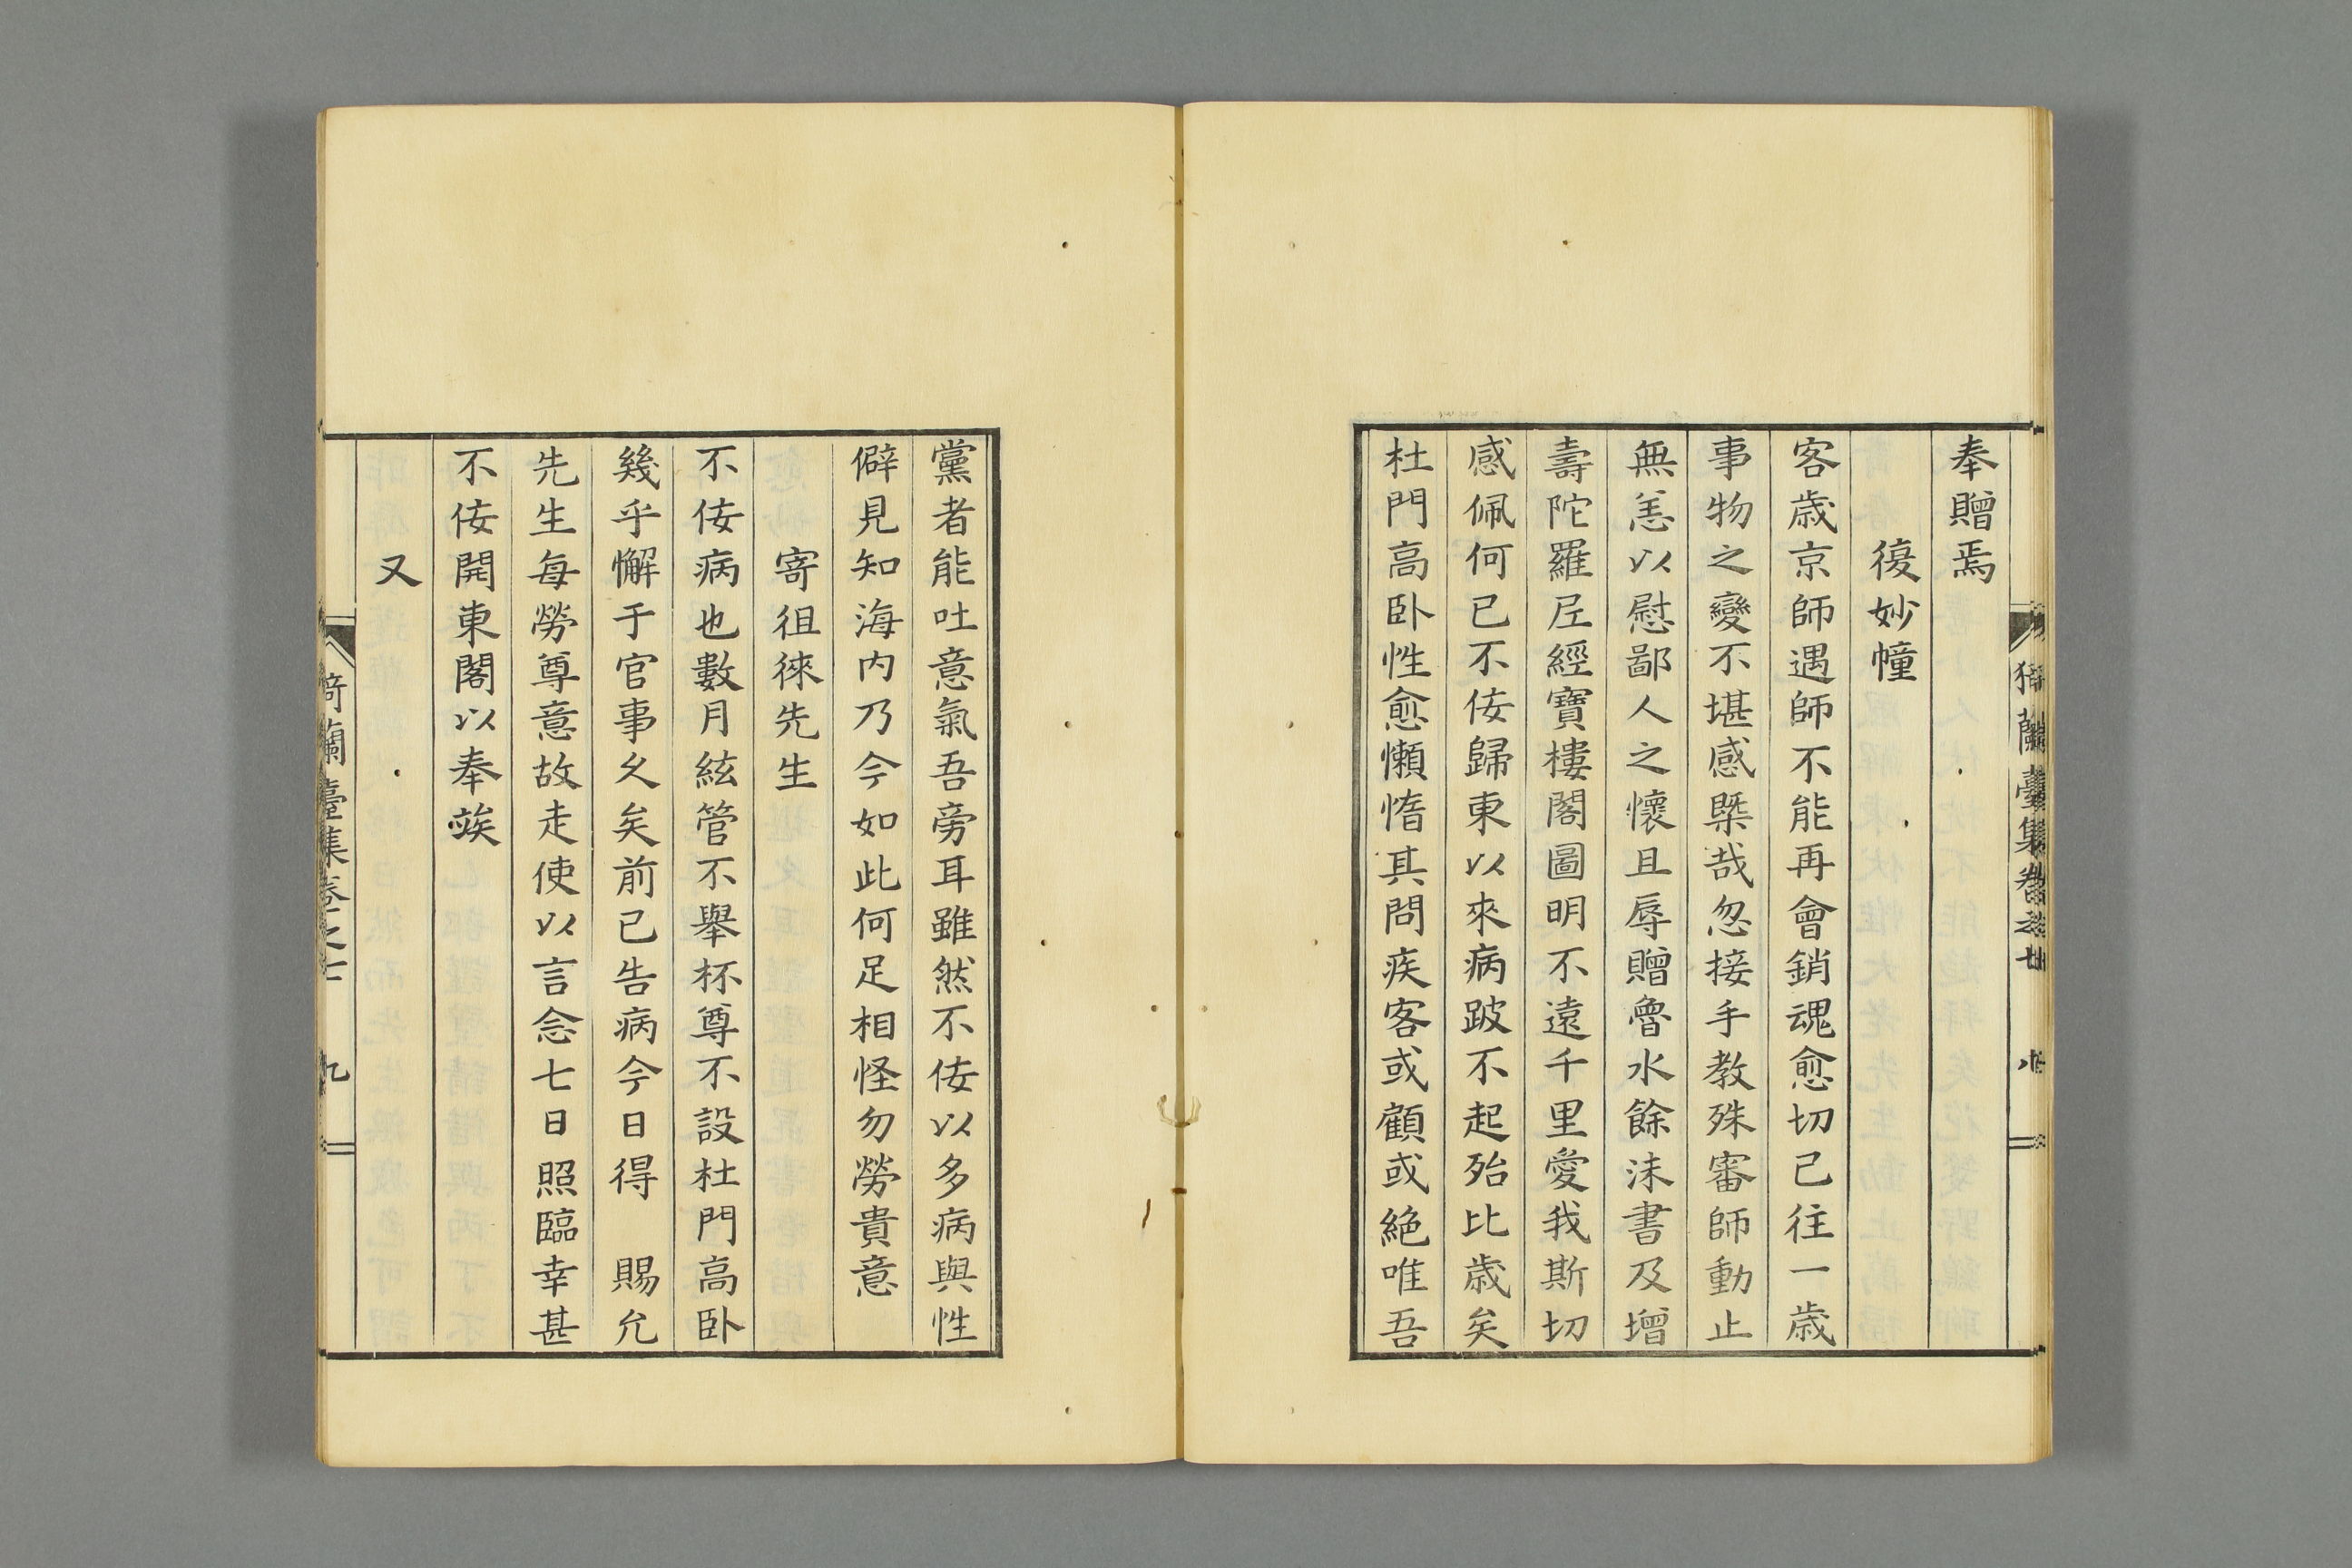 奉贈焉
復妙幢
客歲京師遇師不能再會銷魂愈切已往一歲
事物之變不堪感槩哉忽接手教殊審師動止
無恙以慰鄙人之懷且辱贈魯水餘沫書及增
壽陀羅尼經寶樓閣圖明不遠千里愛我斯切
感佩何已不佞歸東以來病跛不起殆比歲矣
杜門高卧性愈懶惰其問疾客或顧或絕唯吾
黨者能吐意氣吾旁耳雖然不佞以多病與性
僻見知海内乃今如此何足相怪勿勞貴意
寄徂徠先生
不佞病也數月絃管不舉杯尊不設杜門高卧
幾乎懈于官事久矣前已告病今日得　賜允
先生每勞尊意故走使以言念七日照臨幸甚
不佞開東閣以奉竢
又
猗蘭臺集卷之七　九